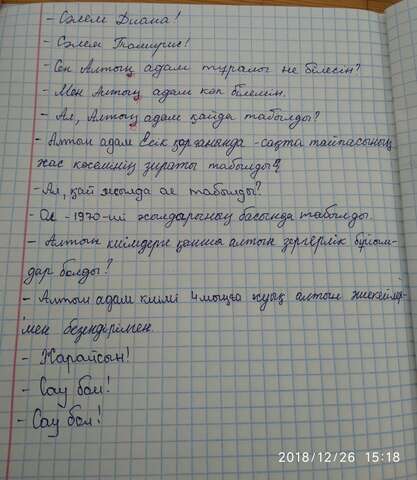 - Сәлем Диана!
- Сәлем Томирис!
- Сен Алтың адам туралы не білесің?
- Мен Алтың адам көп білемін.
- Ал, Алтың адам қайда табылды?
- Алтын адам Есік қорғанында -сақта тайпасының
жас көсемінің зираты табылды?
- Ал, қай жылда ол табылды?
- Ол -1970-ші жылдарының басында табылды.
- Алтын киімдерге қанша алтын зергерлік бұйым-
дар болды?
- Алтын адам киімі 4 мыңға жуық алтын
мен безендірілген.
- Жарайсың!
- Сау бол!
- Сау бол!
2018/12/26 15:18